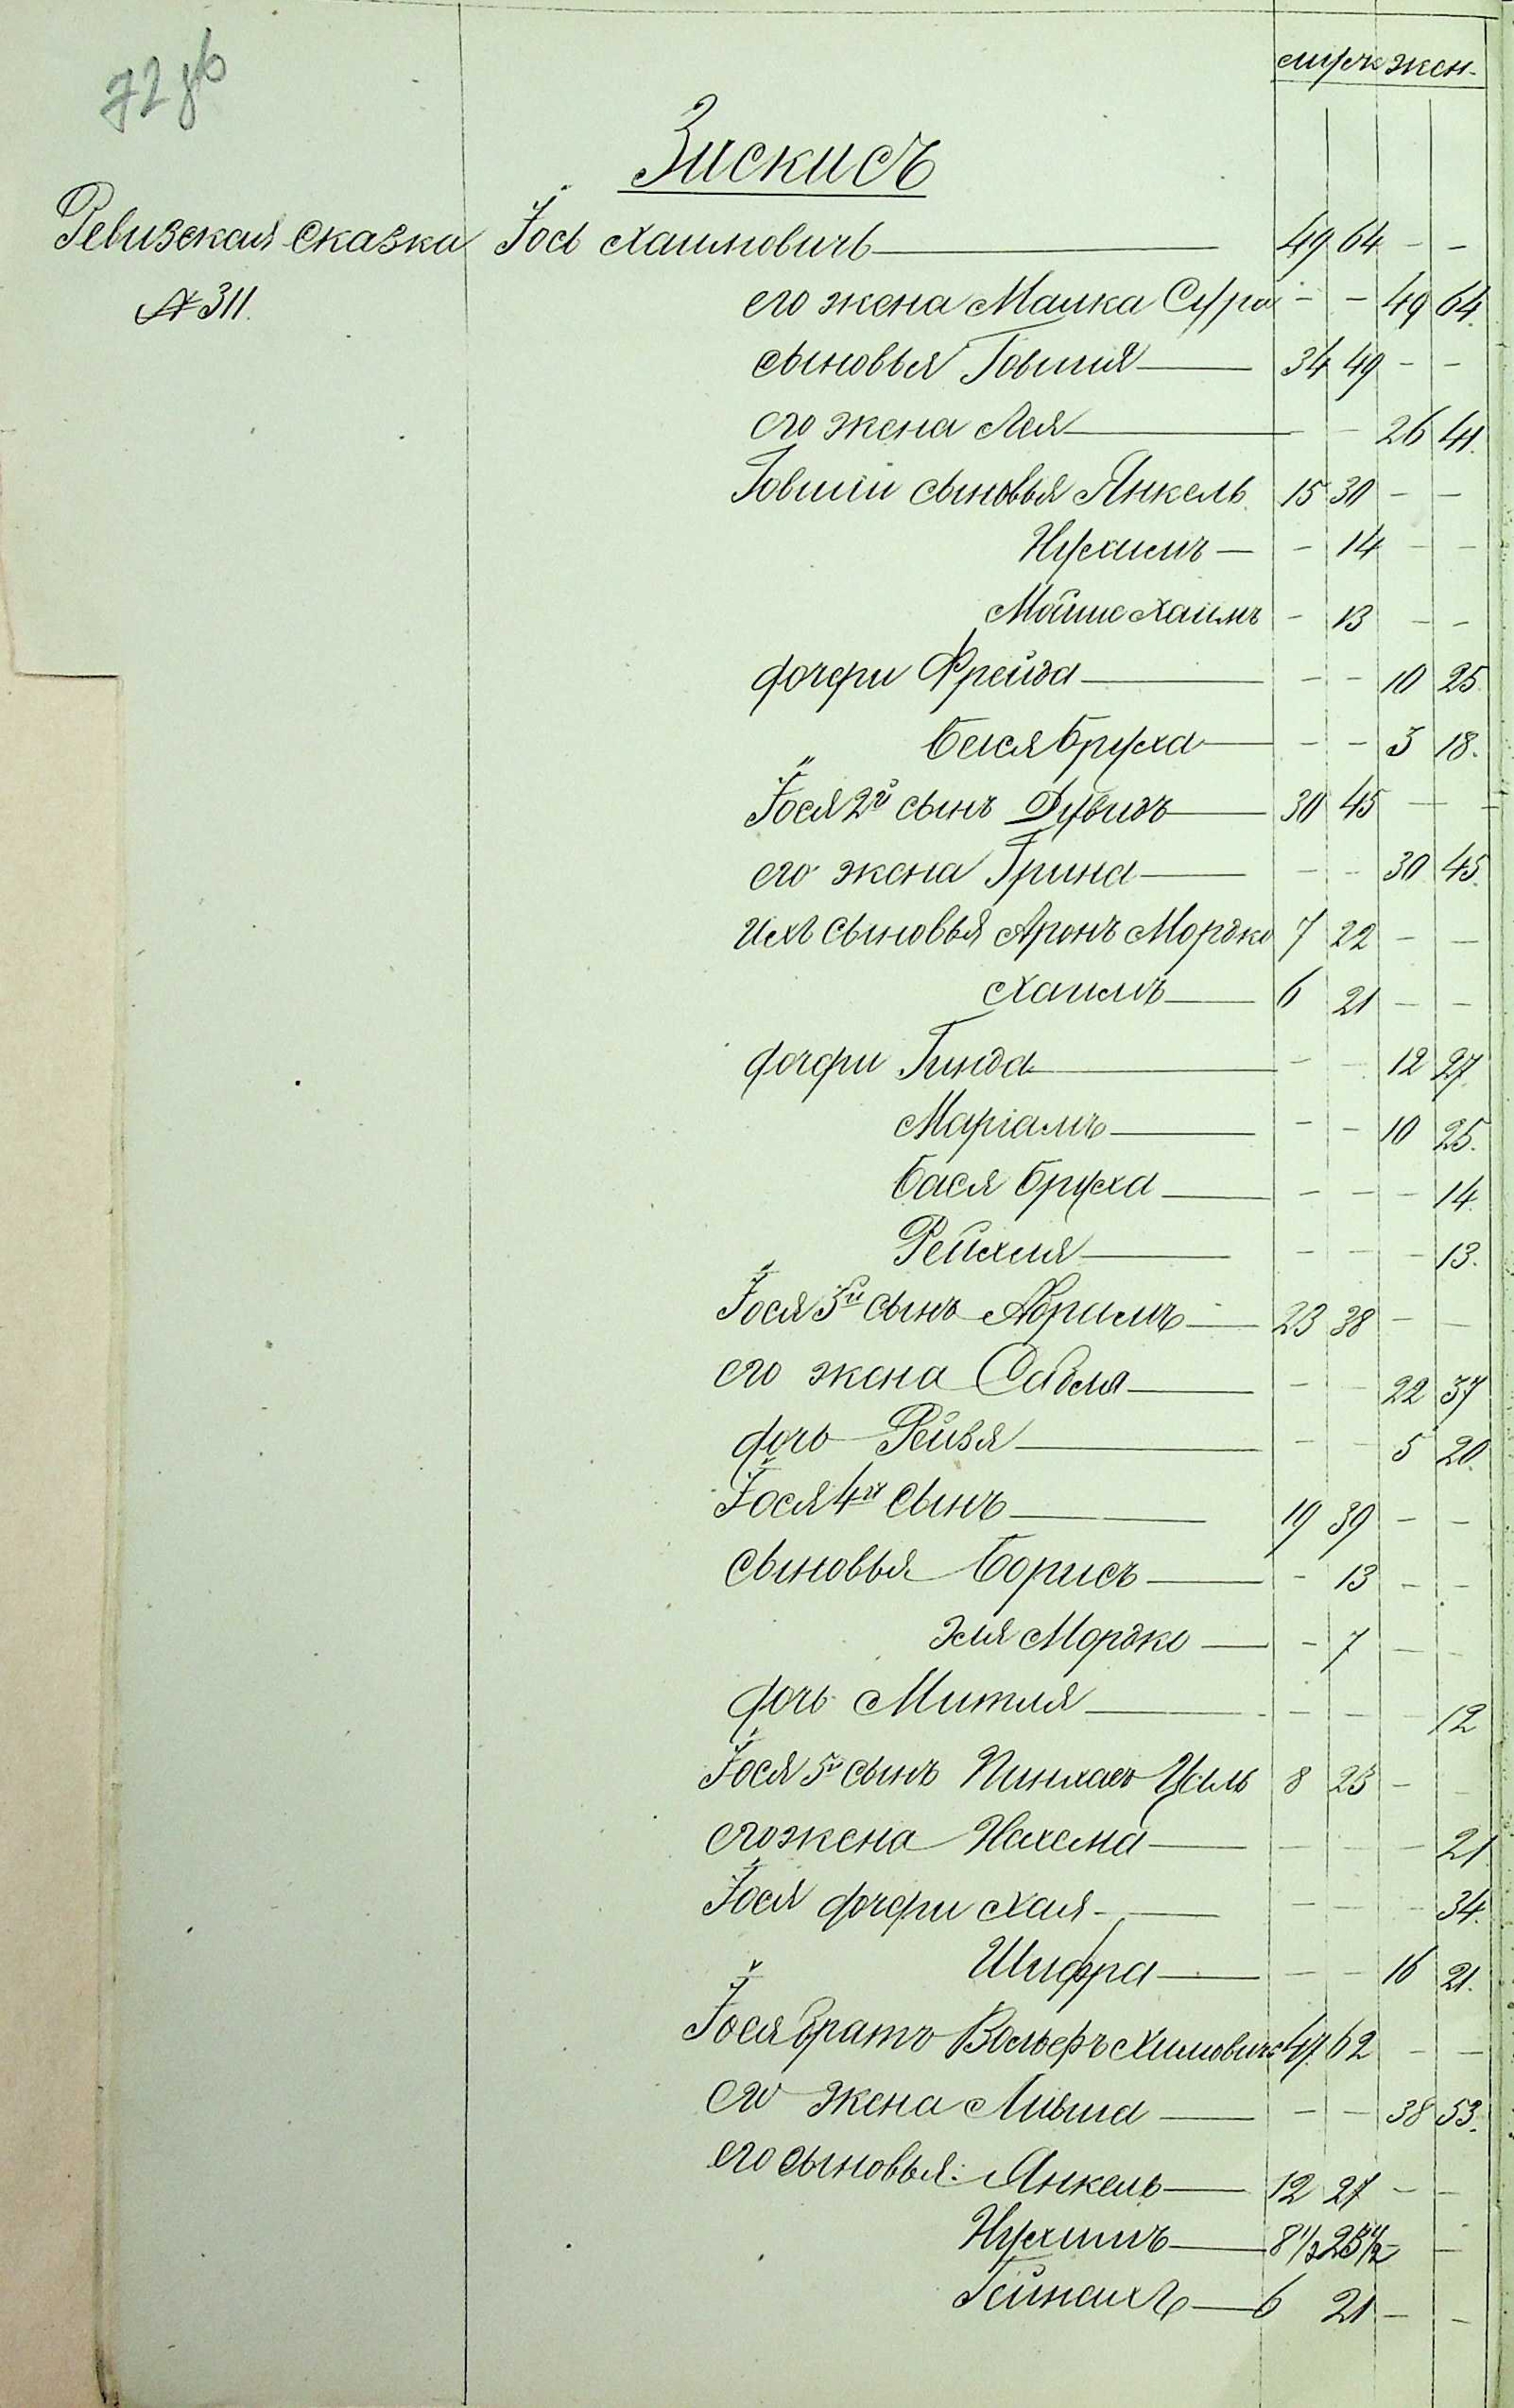 72 об
муж. жен.
Зискисъ
Ревизская сказка Іось Хаимовичъ — 49 64 - -
№ 311.
его жена Малка Сура - - 49 64.
сыновья Говшія — 34 49 - -
его жена Лея — - 26 41.
Говшіи сыновья Янкель 15 30 - -
Нухимъ — - 14 - -
Мошко Хаимъ - 13 - -
дочери Фрейда — - - 10 25
Бася Бруха — - - 3 18.
Іося 2й сынъ Дувидъ — 30 45 - -
его жена Грина — - - 30 45.
ихъ сыновья Аронъ Мордко 7 22 - -
Хаимъ — 6 21 - -
дочери Гинда — - - 12 27
Маріамъ — - - 10 25.
Бася Бруха — - - - 14.
Рейхля — - - - 13.
Іося 3й сынъ Абрамъ — 23 38 - -
его жена Сабля — - - 22 37
дочь Рейзя — - - 5 20.
Іося 4й сынъ — 19 39 - -
сыновья Борисъ — - 13 - -
Эля Мордко — - 7 - -
дочь Митля — - - - 12
Іося 5й сынъ Пинхасъ 8 23 - -
его жена Нехема — - - - 21
Іося дочери Хая — - - - 34.
Шифра — - - 16 21.
Іося братъ Вольфъ Химовичъ 47. 62 - -
его жена — - - 38 53.
его сыновья: Янкель — 12 27 - -
Нухимъ — 8 1/2 23 1/2 - -
Гейнахъ — 6 21 - -